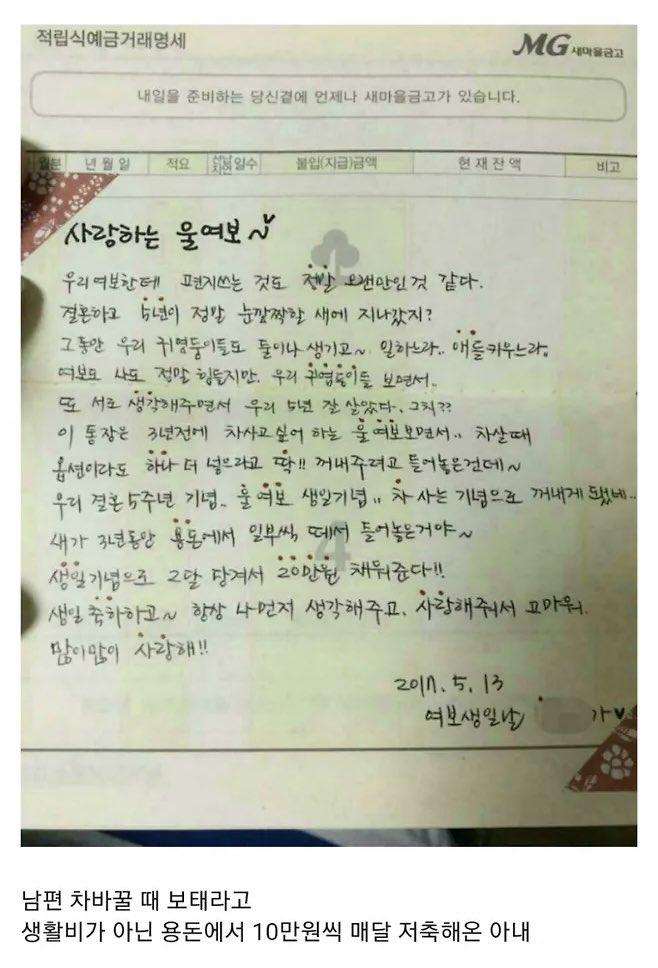 적립식예금거래명세
MG 새마을금고
내일을 준비하는 당신곁에 언제나 새마을금고가 있습니다.
월분 년월일 적요 선납 지연 일수 불입(지급)금액 현재잔액 비고
사랑하는 울여보~♥
우리여보한테 편지쓰는 것도 정말 오랜만인것 같다.
결혼하고 5년이 정말 눈깜짝할 새에 지나갔지?
그동안 우리 귀염둥이들도 둘이나 생기고~ 일하느라.. 애들키우느라,
여보도 나도 정말 힘들지만, 우리 귀염둥이들 보면서..
또 서로 생각해주면서 우리 5년 잘 살았다. 그치??
이 통장은 3년전에 차사고싶어 하는 울여보보면서.. 차살때
옵션이라도 하나 더 넣으라고 딱!! 꺼내주려고 들어놓은건데~
우리 결혼 5주년 기념.. 울여보 생일기념.. 차 사는 기념으로 꺼내게 됐네..
내가 3년동안 용돈에서 일부씩 떼서 들어놓은거야~
생일기념으로 2달 당겨서 20만원 채워준다!!
생일 축하하고~ 항상 나먼저 생각해주고, 사랑해줘서 고마워.
많이많이 사랑해!!
2017. 5. 13
여보생일날 가♥
4
남편 차바꿀 때 보태라고
생활비가 아닌 용돈에서 10만원씩 매달 저축해온 아내